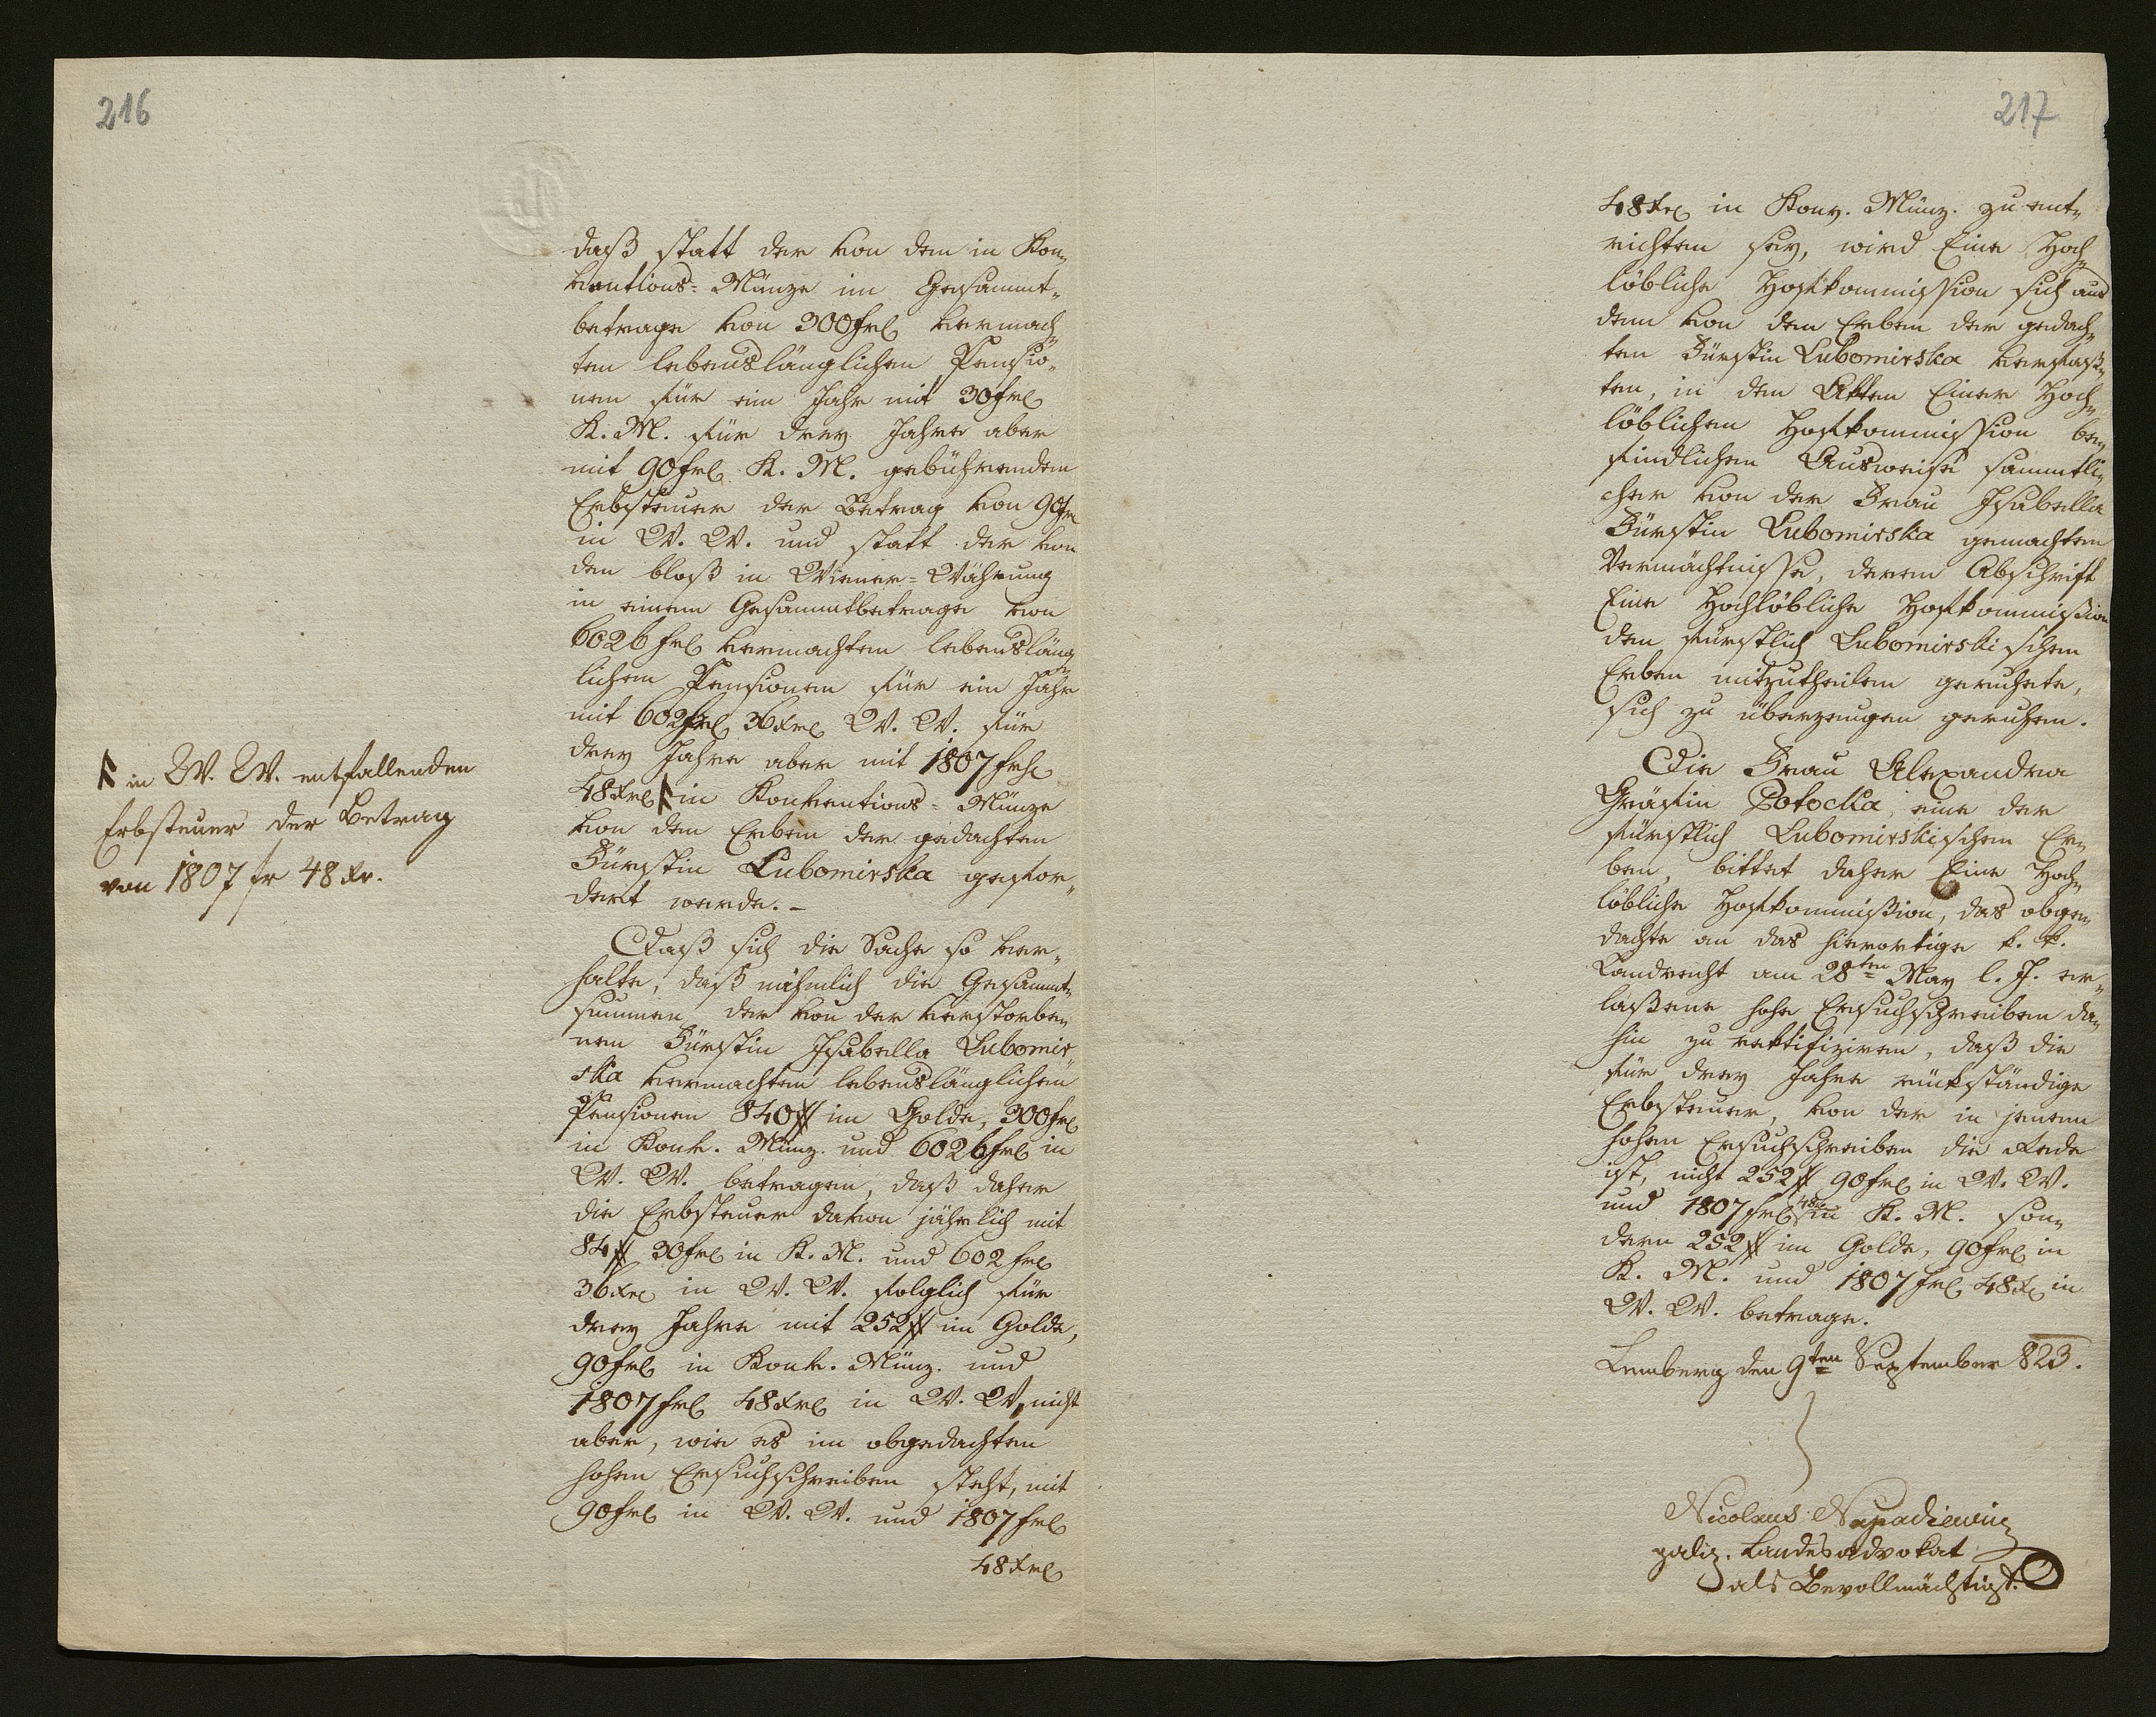 216
daß statt der von den in Kon„
ventions-Münze im Gesammt„
betrage von 300 frl vermach„
ten lebenslänglichen Pensio„
nen für ein Jahr mit 30 frl
K. M. für drey Jahre aber
mit 90 frl K. M. gebührenden
Erbsteuer der Betrag von 90 fr
in W. W. und statt der von
den bloß in Wiener-Währung
in einem Gesammtbetrage von
6026 frl vermachten lebensläng„
lichen Pensionen für ein Jahr
mit 602 frl 36 xrl W. W. für
drey Jahre aber mit 1807 frl
48 xrl in Konventions-Münze
von den Erben der gedachten
Fürstin Lubomirska gefor„
dert werde. –
in W. W. entfallenden
Erbsteuer der Betrag
von 1807 fr 48 xr.
Daß sich die Sache so ver„
halte, daß nähmlich die Gesammt„
summen der von der verstorbe„
nen Fürstin Isabella Lubomir„
ska vermachten lebenslänglichen
Pensionen 840 # im Golde, 300 frl
in Konv. Münz. und 6026 frl in
W. W. betragen, daß daher
die Erbsteuer davon jährlich mit
84 # 30 frl in K. M. und 602 frl
36 xrl in W. W. folglich für
drey Jahre mit 252 # im Golde,
90 frl in Konv. Münz. und
1807 frl 48 xrl in W. W. nicht
aber, wie es im obgedachten
hohen Ersuchschreiben steht, mit
90 frl in W. W. und 1807 frl
48 xrl
217
48 xrl in Konv. Münz. zu ent„
richten sey, wird Eine Hoch„
löbliche Hofkommission sich aus
dem von den Erben der gedach„
ten Fürstin Lubomirska verfaß„
ten, in den Akten Einer Hoch„
löblichen Hofkommission be„
findlichen Ausweise sammtli„
cher von der Frau Isabella
Fürstin Lubomirska gemachten
Vermächtnisse, deren Abschrift
Eine Hochlöbliche Hofkommißion
den fürstlich Lubomirskischen
Erben mitzutheilen geruhete,
sich zu überzeugen geruhen.
Die Frau Alexandra
Gräfin Potocka, eine der
fürstlich Lubomirskischen Er„
ben, bittet daher Eine Hoch„
löbliche Hofkommißion, das obge„
dachte an das hierortige k. k.
Landrecht am 28ten May l. J. er„
laßene hohe Ersuchschreiben da„
hin zu rektifiziren, daß die
für drey Jahre rückständige
Erbsteuer, von der in jenem
hohen Ersuchschreiben die Rede
ist, nicht 252 # 90 frl in W. W.
und 1807 frl 48 xr in K. M. son„
dern 252 # im Golde, 90 frl in
K. M. und 1807 frl 48 x in
W. W. betrage.
Lemberg den 9ten September 823.
Nicolaus Napadiewicz
galiz. Landesadvokat
als Bevollmächtigt.